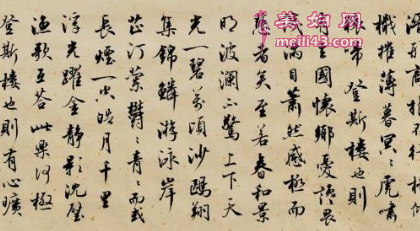 美妇网
meili43.com
檝摧薄暮冥々虎嘯
啼登斯樓也則
國懷鄉憂讒畏
滿目蕭然感極而
者矣至若春和景
明波瀾不驚上下天
光一碧萬頃沙鷗翔
集錦鱗游泳岸
芷汀蘭鬱々青々而或
長煙一空皓月千里
浮光躍金靜影沈璧
漁歌互答此樂何極
登斯樓也則有心曠